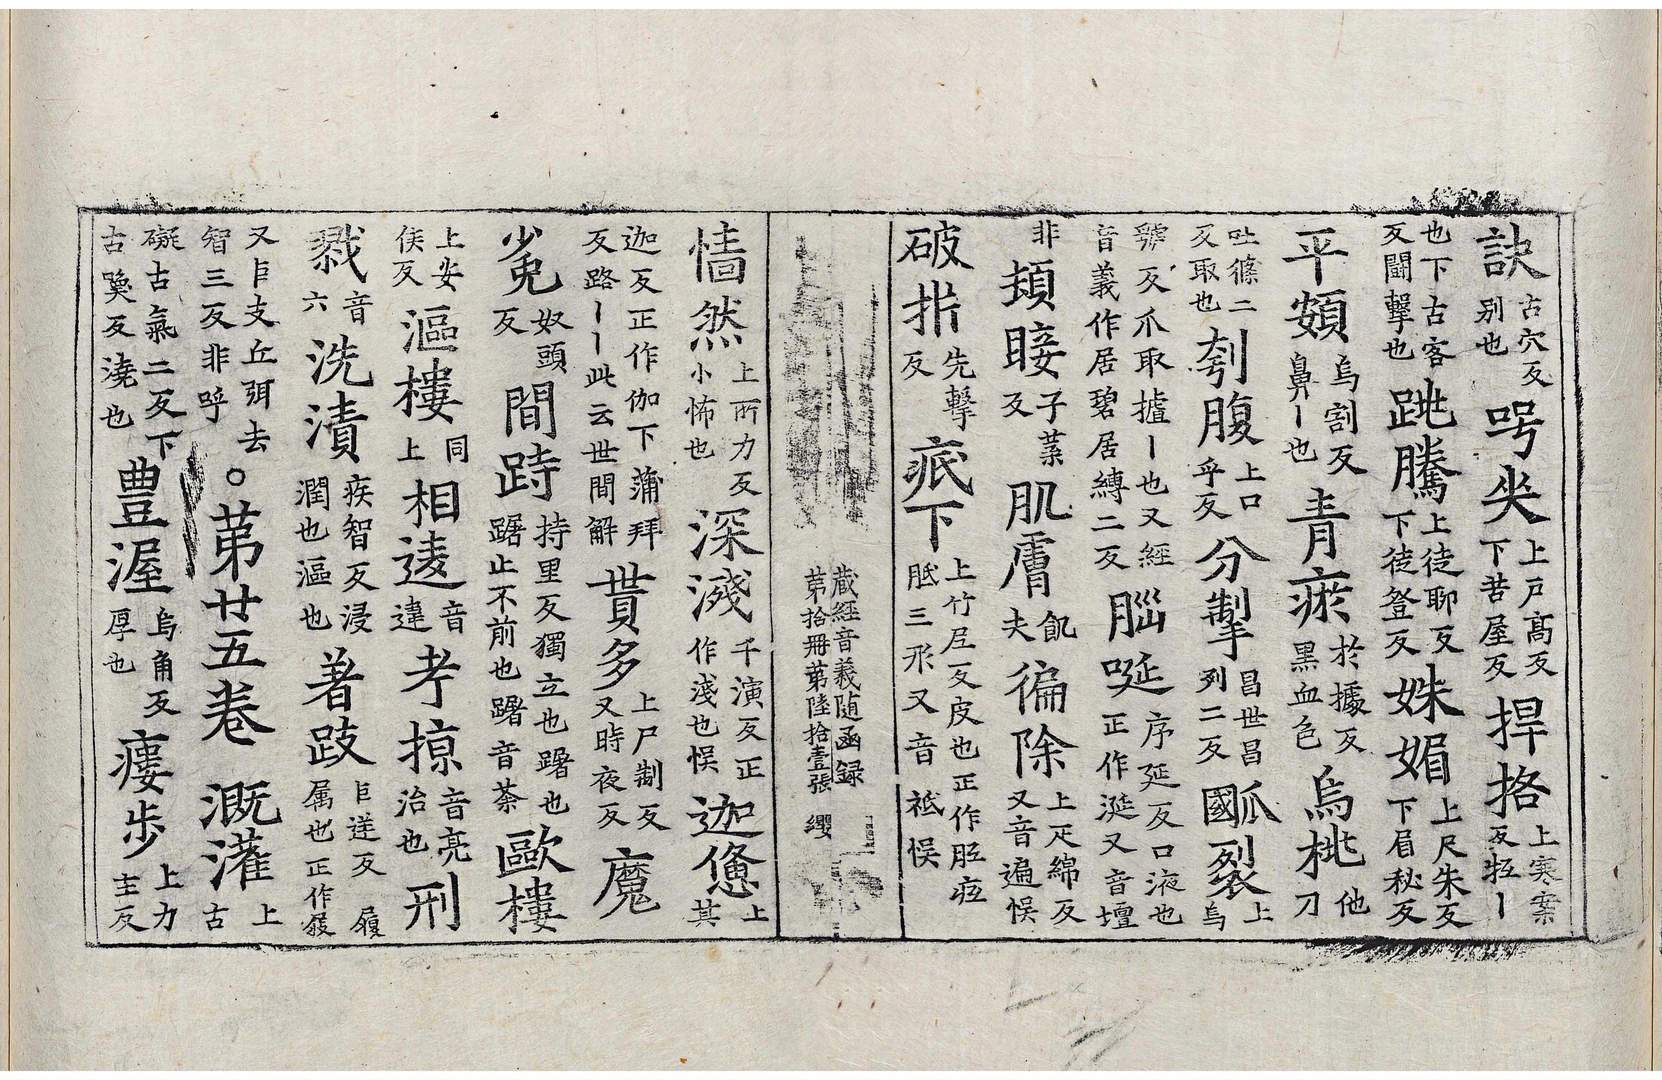 訣古穴反别也呺哭上户髙反下苦屋反捍格上寒案反牴丨
也下古客反鬪擊也跳騰上徒聊反下徒登反姝媚上尺朱反下眉秘反
平頞烏割反鼻丨也青瘀於據反黑血色烏桃他刀
吐篠二反取也刳腹上口乎反分掣昌世昌列二反㼌裂上烏
號反爪取攎丨也又經音義作居碧居縛二反腦唌序延反口液也正作涎又音壇
非䪼睫子葉反肌膚夫飢徧除上疋綿反又音遍悮
破㧗先擊反疧下上竹尼反皮也正作胵疷胝三形又音祇悮
藏經音義随函録第拾冊第陸拾壹張纓
懎然上所力反小怖也深濺千演反正作淺也悮迦僁上其
迦反正作伽下蒲拜反路丨丨此云世間解貰多上尸制反又時夜反魔
㝹奴頭反間跱持里反獨立也躇也踞止不前也躇音荼歐樓
上安侯反漚樓同上相逺音違考掠音亮治也刑
戮音六洗漬疾智反浸潤也漚也著跂巨逆反屬也正作屐履
又巨支丘弭去智三反非呼○第廿五卷溉灌上古
礙古氣二反下古奐反澆也豊渥烏角反厚也瘻步上力主反